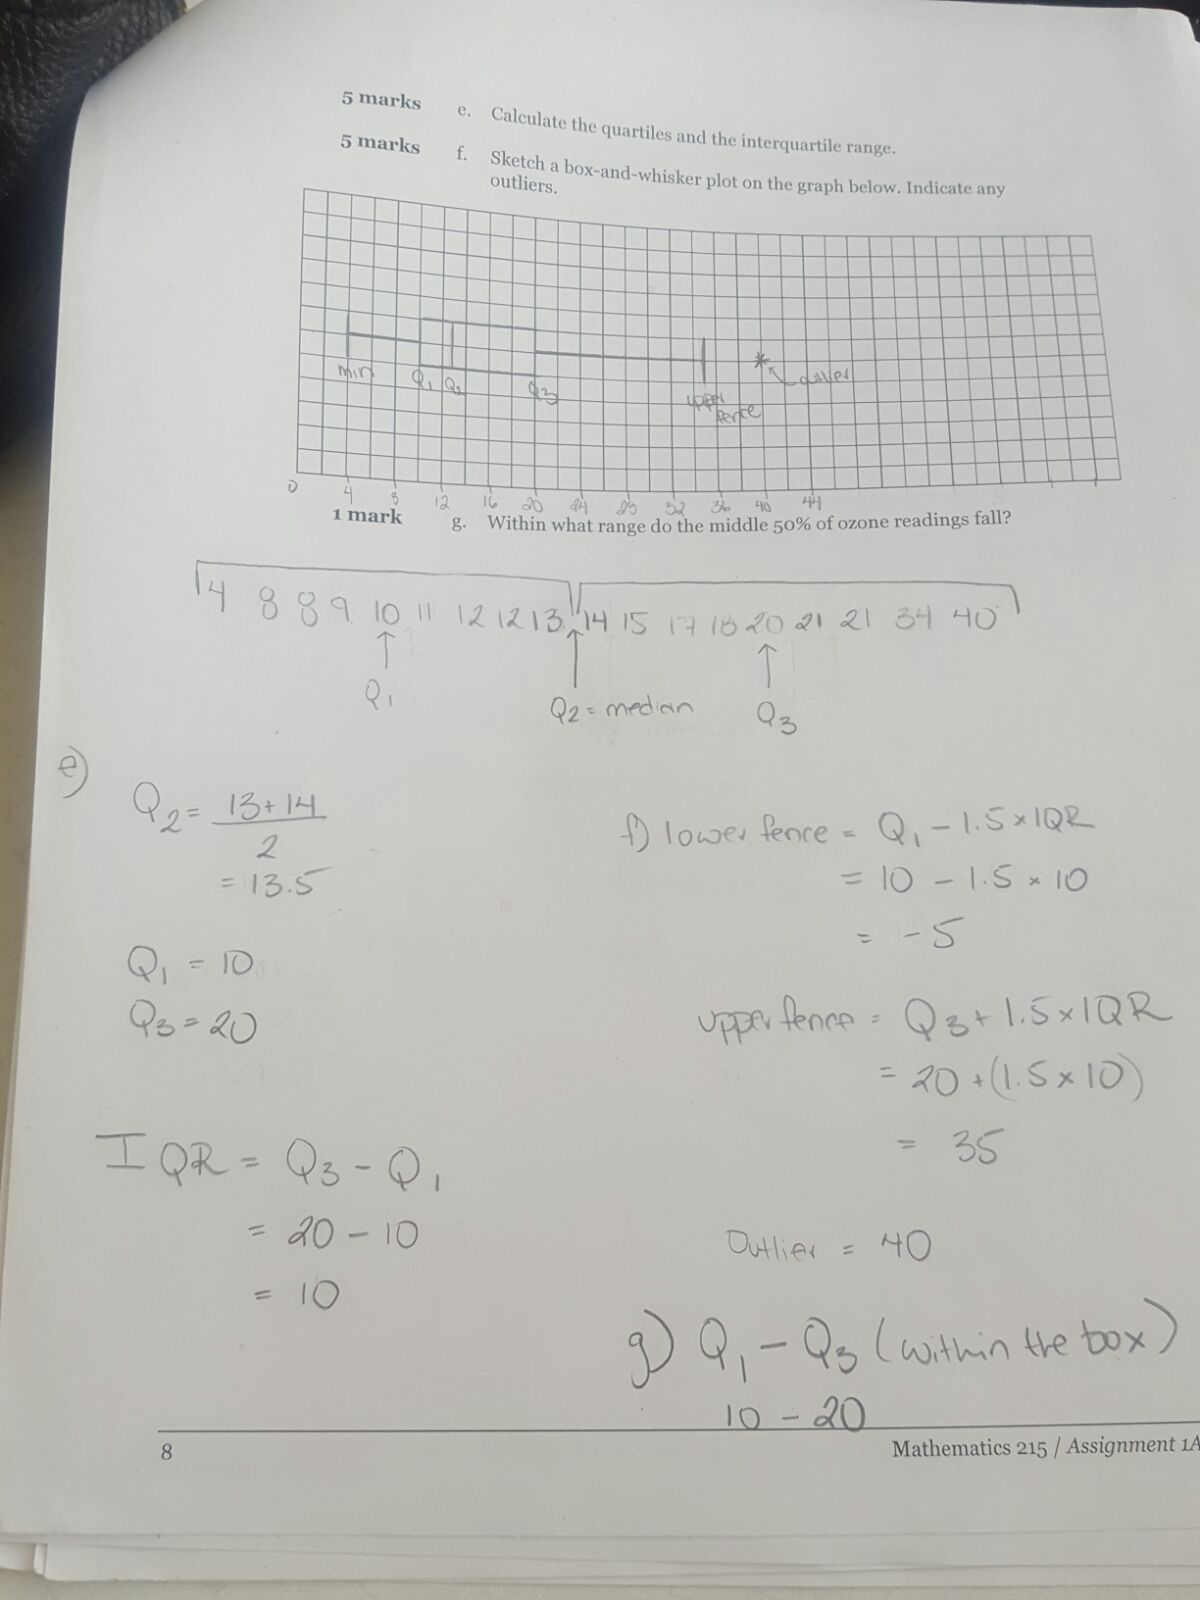 5 marks e. Calculate the quartiles and the interquartile range.
5 marks f. Sketch a box-and-whisker plot on the graph below. Indicate any
outliers.
min Q1 Q2 Q3 upper fence outlier
0 4 8 12 16 20 24 28 32 36 40 44
1 mark g. Within what range do the middle 50% of ozone readings fall?
4 8 8 9 10 11 12 12 13 14 15 17 18 20 21 21 34 40
Q1 Q2 = median Q3
e)
Q2 = 13 + 14
2
= 13.5
Q1 = 10
Q3 = 20
IQR = Q3 - Q1
= 20 - 10
= 10
f) lower fence = Q1 - 1.5 × IQR
= 10 - 1.5 × 10
= -5
upper fence = Q3 + 1.5 × IQR
= 20 + (1.5 × 10)
= 35
Outlier = 40
g) Q1 - Q3 (within the box)
10 - 20
8 Mathematics 215 / Assignment 1A